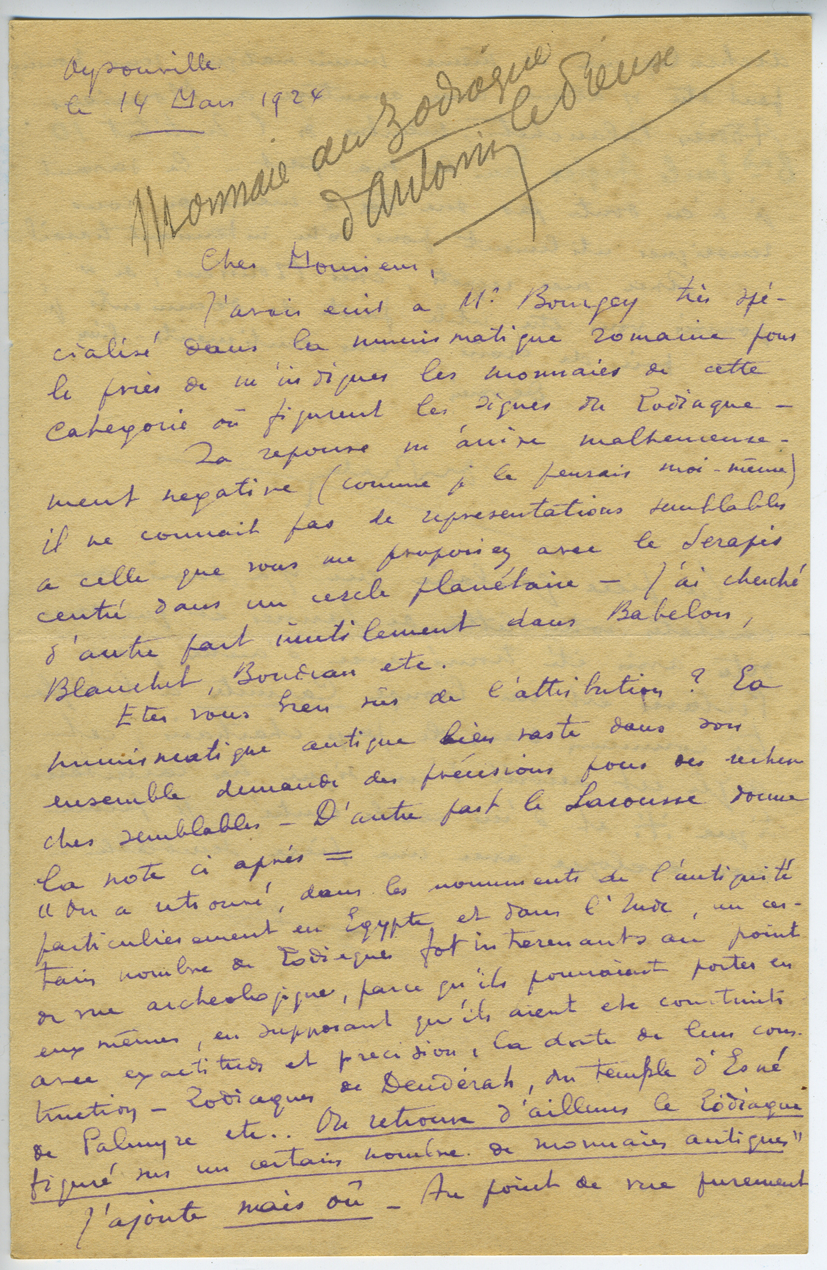 le 14 Mars 1924
Monnaie au Zodiaque
d'Antonin le Pieuse
Cher Monsieur,
J'avais écrit a Mr Bourgey très spé-
cialisé dans la numismatique romaine pour
le prier de m'indiquer les monnaies de cette
categorie où figurent les signes du Zodiaque —
La reponse m'arrive malheureuse-
ment negative (comme je le pensais moi-même)
il ne connait pas de representations semblables
a celle que vous me proposiez avec le Serapis
centré dans un cercle planétaire — J'ai cherché
d'autre part inutilement dans Babelon,
Blanchet, etc.
Etes vous bien sûr de l'attribution ? La
numismatique antique bien vaste dans son
ensemble demande des précisions pour des recher
ches semblables — D'autre part le Larousse donne
la note ci après =
"On a retrouvé, dans les monuments de l'antiquité
particulièrement en Egypte et dans l'Inde, un cer-
tain nombre de Zodiaques fort interessants au point
de vue archeologique, parce qu'ils pourraient porter en
eux mêmes, en supposant qu'ils aient ete construits
avec exactitude et precision, la date de leur cons-
truction — Zodiaques de Denderah, du temple d'Esné
de Palmyre etc.. On retrouve d'ailleurs le Zodiaque
figuré sur un certain nombre de monnaies antiques"
J'ajoute mais où — Au point de vue purement